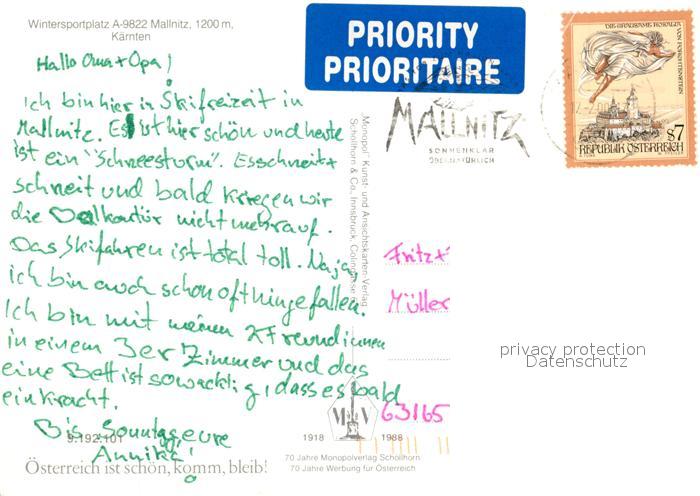 Wintersportplatz A-9822 Mallnitz, 1200 m,
Kärnten
PRIORITY
PRIORITAIRE
MALLNITZ
SONNENKLAR
ÜBERNATÜRLICH
DIE GRAUSAME ROSALIA
VON FORCHTENSTEIN
S7
REPUBLIK ÖSTERREICH
Hallo Oma + Opa!
Ich bin hier in Skifreizeit in
Mallnitz. Es ist hier schön und heute
ist ein "Schneesturm". Es schneit +
schneit und bald kriegen wir
die nicht mehr auf.
Das Skifahren ist total toll. Naja,
ich bin auch schon oft hingefallen.
Ich bin mit meinen 2 Freundinnen
in einem 3er Zimmer und das
eine Bett ist so wackelig, dass es bald
einkracht.
Bis Sonntag, eure
Annika!
Monopol Kunst- und Ansichtskarten-Verlag
Schöllhorn & Co., Innsbruck,
Fritz +
Müller
63165
privacy protection
Datenschutz
9.192.101
1918
MV
1988
Österreich ist schön, komm, bleib!
70 Jahre Monopolverlag Schöllhorn
70 Jahre Werbung für Österreich